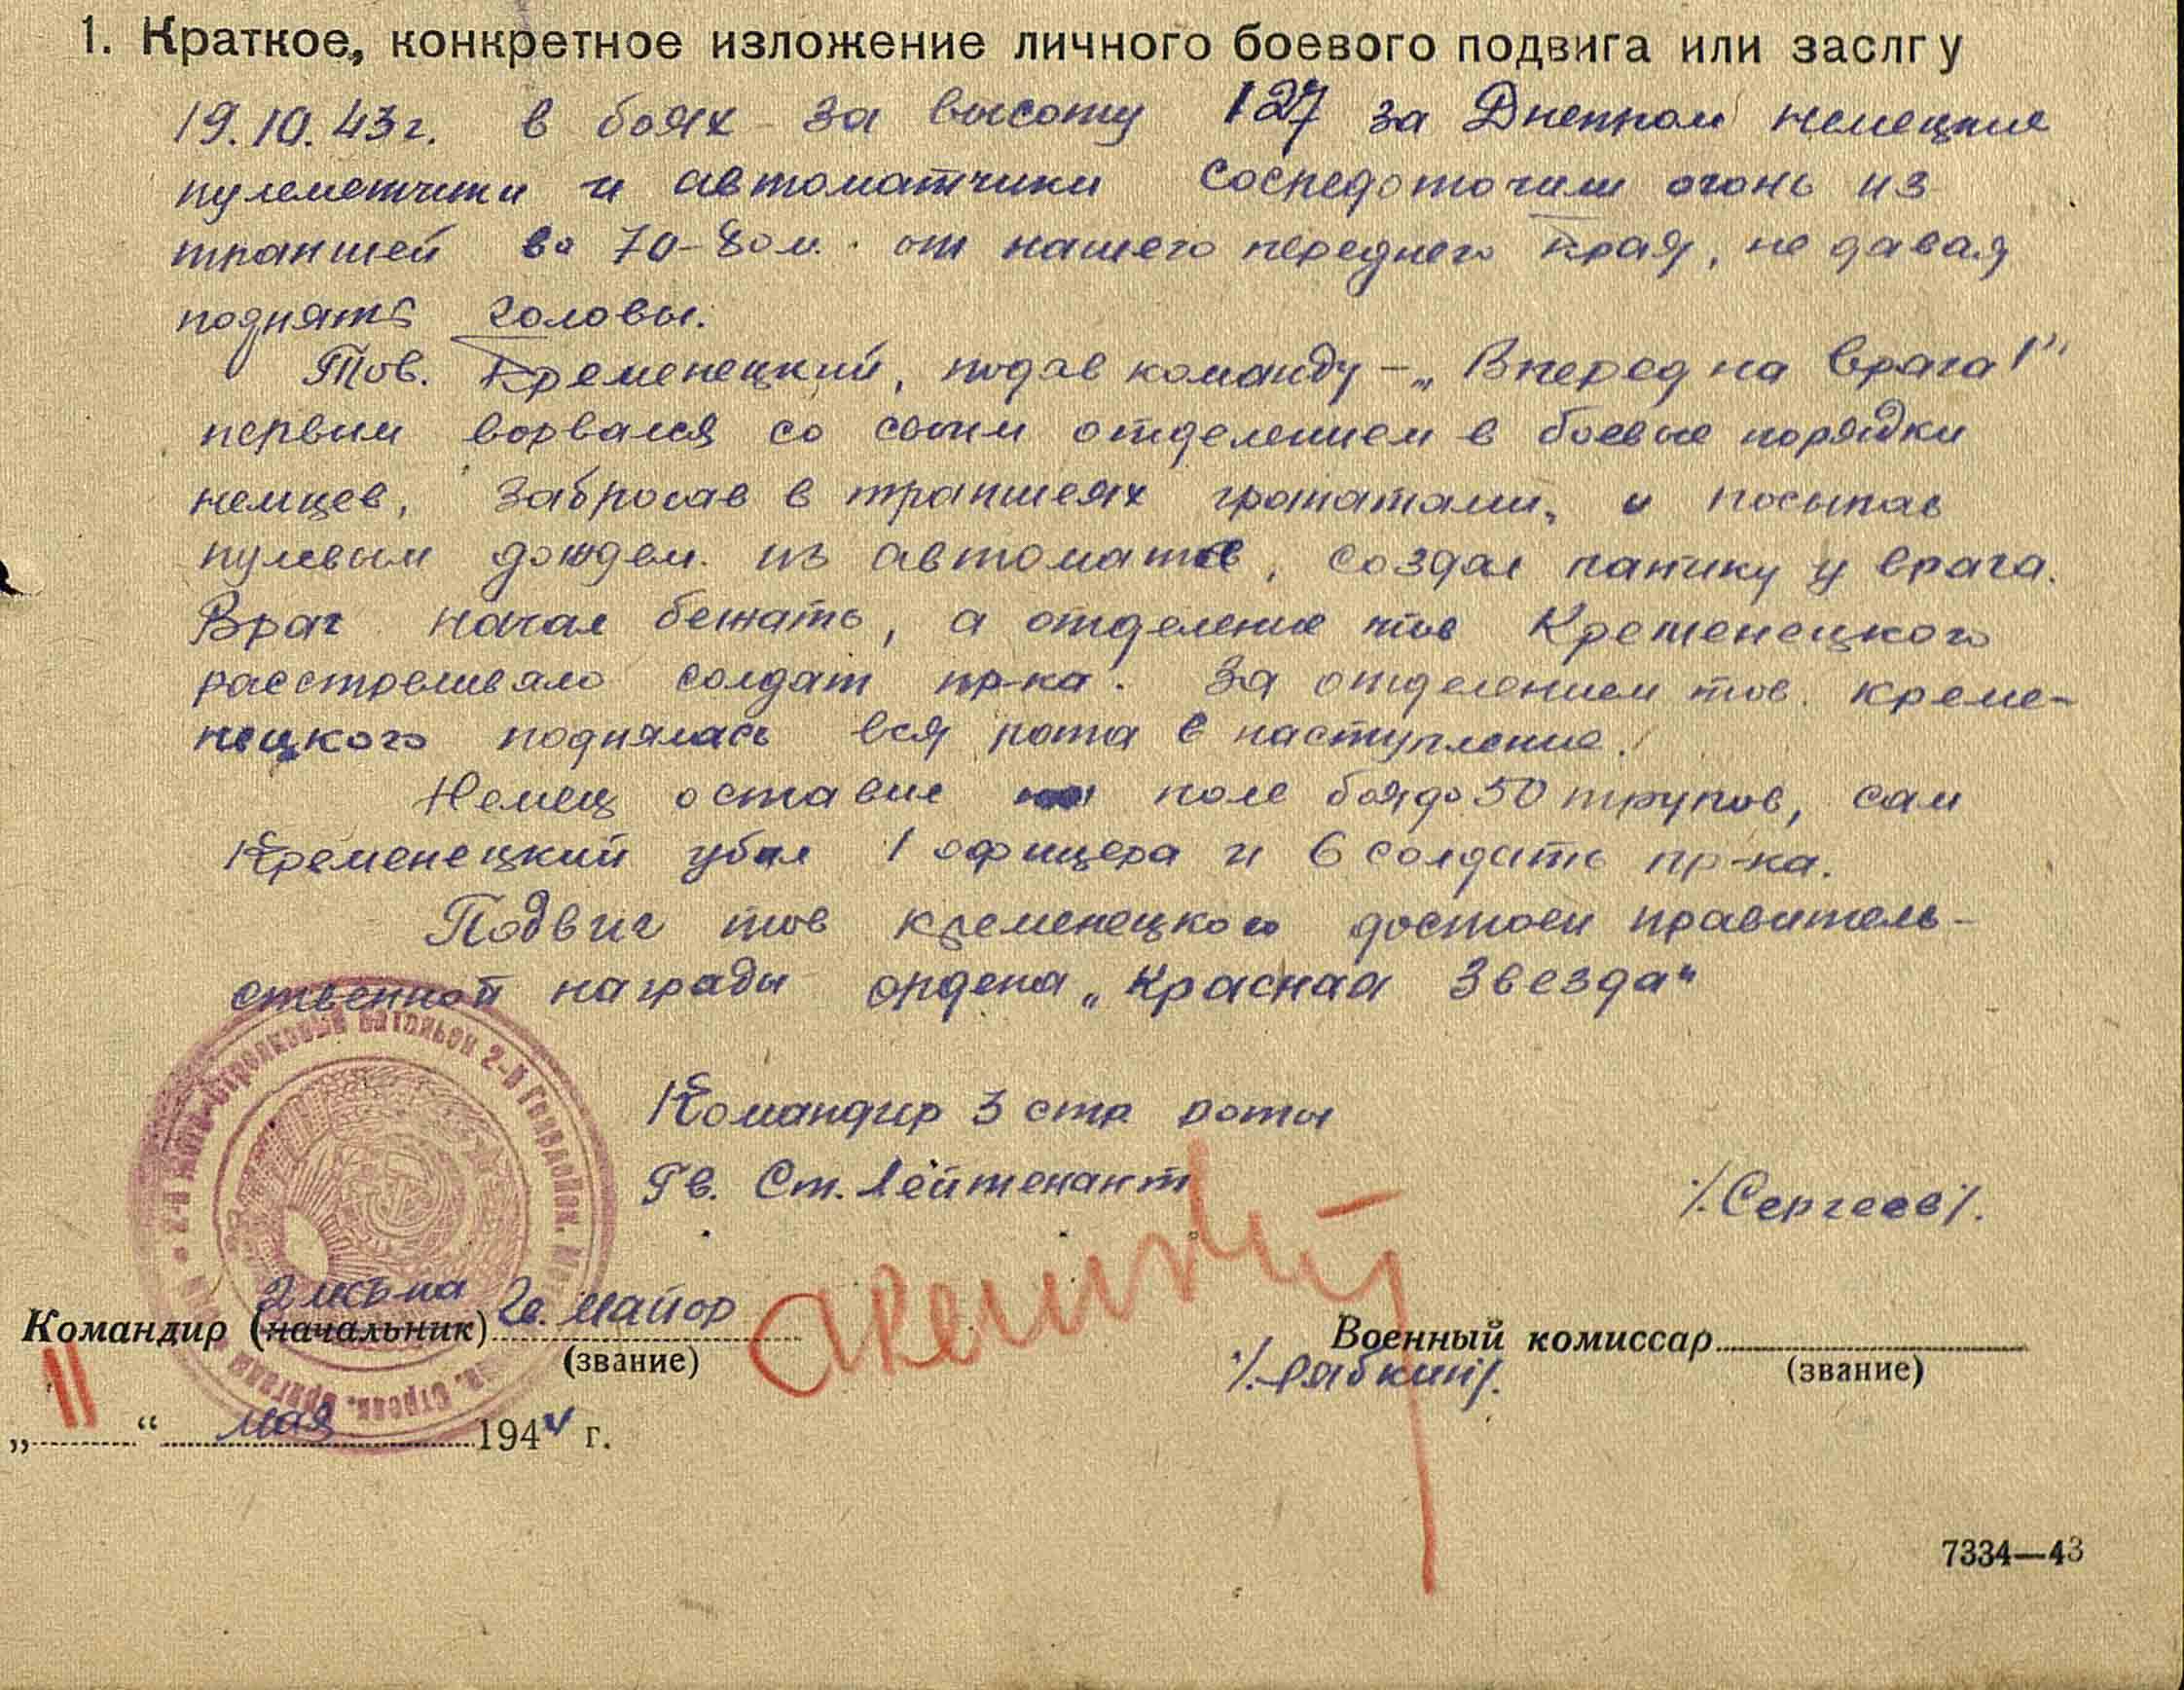 1. Краткое, конкретное изложение личного боевого подвига или заслгу
19.10.43г. в боях за высоту 127 за Днепром немецкие
пулеметчики и автоматчики сосредоточили огонь из
траншей во 70-80 м. от нашего переднего края, не давая
поднять головы.
Тов. Кременецкий, подав команду – „Вперед на врага!"
первым ворвался со своим отделением в боевые порядки
немцев, забросав в траншеях гранатами, и посыпав
пулевым дождем из автоматов, создал панику у врага.
Враг начал бежать, а отделение тов Кременецкого
расстреливало солдат пр-ка. За отделением тов. Креме-
нецкого поднялась вся рота в наступление.
Немец оставил на поле боя до 50 трупов, сам
Кременецкий убил 1 офицера и 6 солдать пр-ка.
Подвиг тов Кременецкого достоен правитель-
ственной награды ордена „Красная Звезда"
Командир 3 стр роты
Гв. Ст. Лейтенант /Сергеев/.
2 мсб-на
Командир (начальник) Гв. майор Военный комиссар
(звание) /Рябкин/. (звание)
„ 11 " мая 1944 г.
2-й Мото-Стрелковый Батальон 2-й Гвардейск. Стрелк. Бригады
7334—43